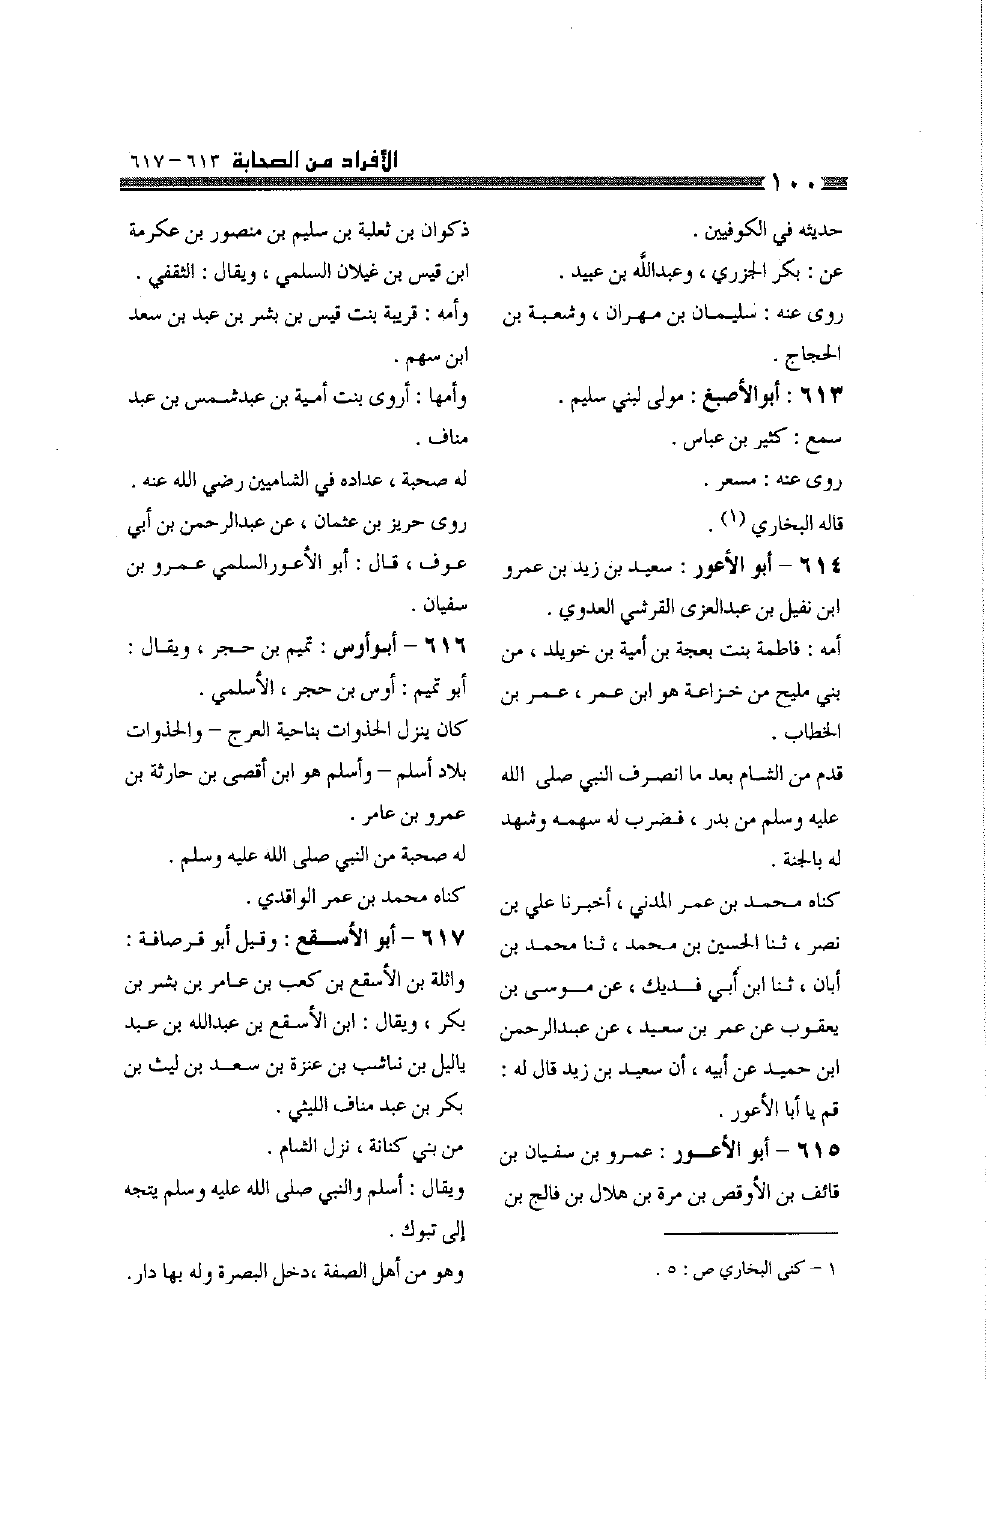 الأفراد من الصحابة ٦١٣-٦١٧
١٠٠
حديثه في الكوفيين .
عن : بكر الجزري ، وعبدالله بن عبيد .
روى عنه : سليمان بن مهران ، وشعبة بن
الحجاج .
٦١٣ : أبوالأصبغ : مولى لبني سليم .
سمع : كثير بن عباس .
روى عنه : مسعر .
قاله البخاري (١) .
٦١٤ - أبو الأعور : سعيد بن زيد بن عمرو
ابن نفيل بن عبدالعزى القرشي العدوي .
أمه : فاطمة بنت بعجة بن أمية بن خويلد ، من
بني مليح من خزاعة هو ابن عمر ، عمر بن
الخطاب .
قدم من الشام بعد ما انصرف النبي صلى الله
عليه وسلم من بدر ، فضرب له سهمه وشهد
له بالجنة .
كناه محمد بن عمر المدني ، أخبرنا علي بن
نصر ، ثنا الحسين بن محمد ، ثنا محمد بن
أبان ، ثنا ابن أبي فديك ، عن موسى بن
يعقوب عن عمر بن سعيد ، عن عبدالرحمن
ابن حميد عن أبيه ، أن سعيد بن زيد قال له :
قم يا أبا الأعور .
٦١٥ - أبو الأعور : عمرو بن سفيان بن
قائف بن الأوقص بن مرة بن هلال بن فالج بن
١ - كنى البخاري ص : ٥ .
ذكوان بن ثعلبة بن سليم بن منصور بن عكرمة
ابن قيس بن غيلان السلمي ، ويقال : الثقفي .
وأمه : قريبة بنت قيس بن بشر بن عبد بن سعد
ابن سهم .
وأمها : أروى بنت أمية بن عبدشمس بن عبد
مناف .
له صحبة ، عداده في الشاميين رضي الله عنه .
روى حريز بن عثمان ، عن عبدالرحمن بن أبي
عوف ، قال : أبو الأعورالسلمي عمرو بن
سفيان .
٦١٦ - أبوأوس : تميم بن حجر ، ويقال :
أبو تميم : أوس بن حجر ، الأسلمي .
كان ينزل الخذوات بناحية العرج - والخذوات
بلاد أسلم - وأسلم هو ابن أقصى بن حارثة بن
عمرو بن عامر .
له صحبة من النبي صلى الله عليه وسلم .
كناه محمد بن عمر الواقدي .
٦١٧ - أبو الأسقع : وقيل أبو قرصافة :
واثلة بن الأسقع بن كعب بن عامر بن بشر بن
بكر ، ويقال : ابن الأسقع بن عبدالله بن عبد
ياليل بن ناشب بن عنزة بن سعد بن ليث بن
بكر بن عبد مناف الليثي .
من بني كنانة ، نزل الشام .
ويقال : أسلم والنبي صلى الله عليه وسلم يتجه
إلى تبوك .
وهو من أهل الصفة ،دخل البصرة وله بها دار.